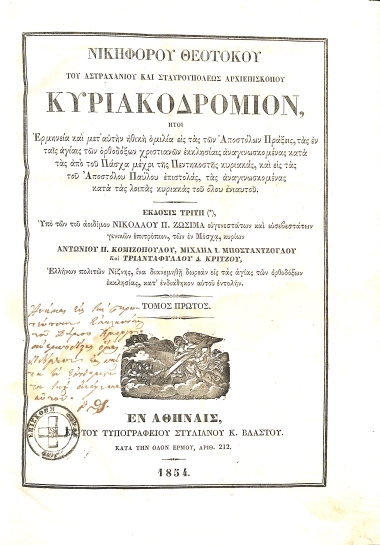 ΝΙΚΗΦΟΡΟΥ ΘΕΟΤΟΚΟΥ
ΤΟΥ ΑΣΤΡΑΧΑΝΙΟΥ ΚΑΙ ΣΤΑΥΡΟΥΠΟΛΕΩΣ ΑΡΧΙΕΠΙΣΚΟΠΟΥ
ΚΥΡΙΑΚΟΔΡΟΜΙΟΝ,
ΗΤΟΙ
Ἑρμηνεία καὶ μετ' αὐτὴν ἠθικὴ ὁμιλία εἰς τὰς τῶν Ἀποστόλων Πράξεις, τὰς ἐν
ταῖς ἁγίαις τῶν ὀρθοδόξων χριστιανῶν ἐκκλησίαις ἀναγινωσκομένας κατὰ
τὰς ἀπὸ τοῦ Πάσχα μέχρι τῆς Πεντηκοστῆς κυριακάς, καὶ εἰς τὰς
τοῦ Ἀποστόλου Παύλου ἐπιστολάς, τὰς ἀναγινωσκομένας
κατὰ τὰς λοιπὰς κυριακὰς τοῦ ὅλου ἐνιαυτοῦ.
ΕΚΔΟΣΙΣ ΤΡΙΤΗ (*),
Ὑπὸ τῶν τοῦ ἀοιδίμου ΝΙΚΟΛΑΟΥ Π. ΖΩΣΙΜΑ εὐγενεστάτων καὶ εὐσεβεστάτων
γενικῶν ἐπιτρόπων, τῶν ἐν Μόσχᾳ, κυρίων
ΑΝΤΩΝΙΟΥ Π. ΚΟΜΙΖΟΠΟΥΛΟΥ, ΜΙΧΑΗΛ Ι. ΜΠΟΣΤΑΝΤΖΟΓΛΟΥ
Καὶ ΤΡΙΑΝΤΑΦΥΛΛΟΥ Δ. ΚΡΙΤΖΟΥ,
Ἑλλήνων πολιτῶν Νίζνης, ἵνα διανεμηθῇ δωρεὰν εἰς τὰς ἁγίας τῶν ὀρθοδόξων
ἐκκλησίας, κατ' ἐνδιάθηκον αὐτοῦ ἐντολήν.
ΤΟΜΟΣ ΠΡΩΤΟΣ.
ΕΝ ΑΘΗΝΑΙΣ,
ΕΚ ΤΟΥ ΤΥΠΟΓΡΑΦΕΙΟΥ ΣΤΥΛΙΑΝΟΥ Κ. ΒΛΑΣΤΟΥ.
ΚΑΤΑ ΤΗΝ ΟΔΟΝ ΕΡΜΟΥ, ΑΡΙΘ. 212.
1854.